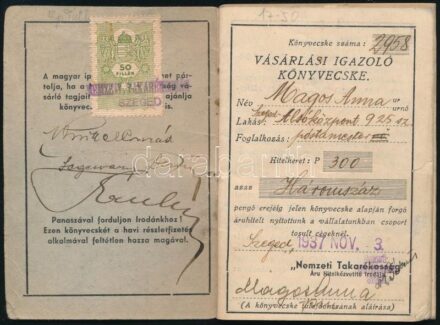 50
FILLÉR
NEMZETI TAKARÉKOSSÁG
SZEGED
A magyar ip
tolja, ha a
sárló tagjait
könyvecs
pár-
ség vá-
ajánlja
Panaszával forduljon Irodánkhoz!
Ezen könyvecskét a havi részletfizetés
alkalmával feltétlen hozza magával.
17-50
Könyvecske száma: 2958
VÁSÁRLÁSI IGAZOLÓ
KÖNYVECSKE.
Név Magos Anna úrnő
Lakás: Szeged Alsóközpont 925 sz
Foglalkozás: postamester
Hitelkeret: P 300
azaz Háromszáz
pengő erejéig jelen könyvecske alapján forgó
áruhitelt nyitottunk a vállalatunkban csoport
tosult cégeknél.
Szeged, 1937 NOV. 3.
„Nemzeti Takarékosság"
Áru Hitelközvetítő Iroda
Magos Anna
(A könyvecske tulajdonosának aláírása)
darabanth